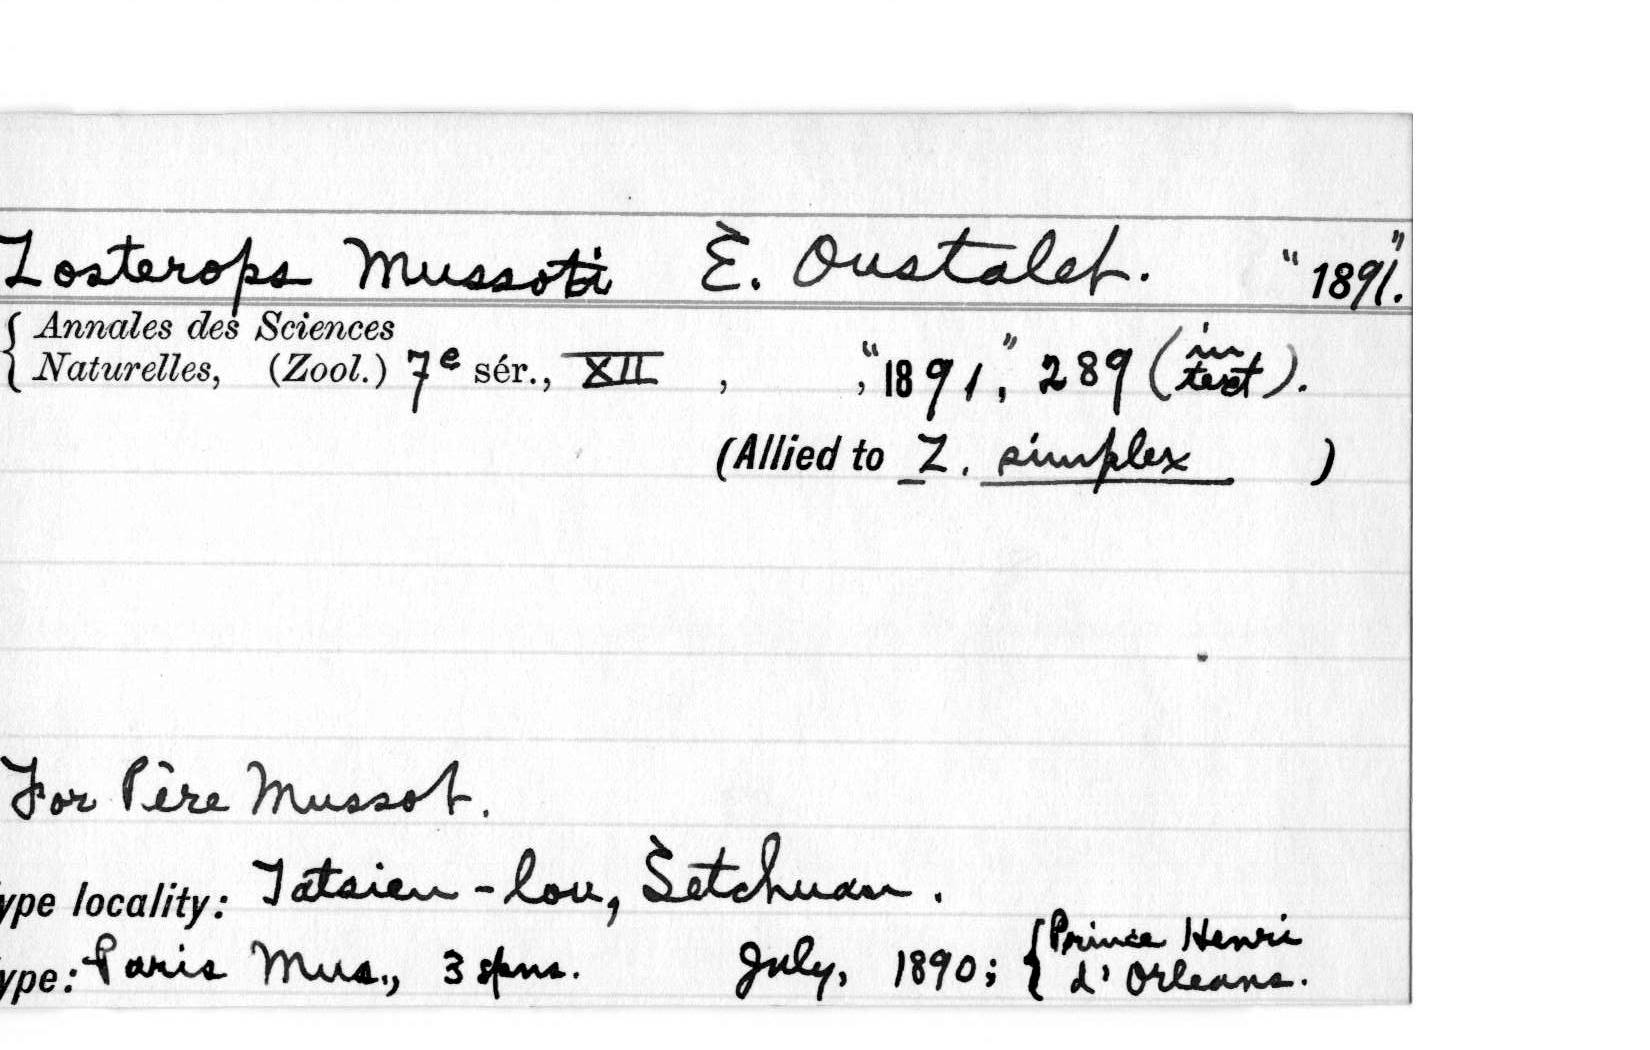 Zosterops Mussoti È. Oustalet. "1891."
{ Annales des Sciences
Naturelles, (Zool.) 7e sér., XII , ,"1891," 289 (in text).
(Allied to Z. simplex )
For Père Mussot.
ype locality: Tatsien-lou, Setchuan.
ype: Paris Mus., 3 spns. July, 1890; { Prince Henri
d'Orleans.